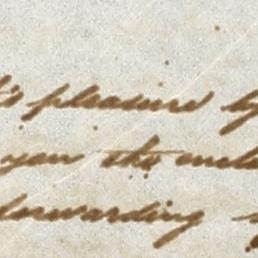 's pleasure by
you the encla
forwarding